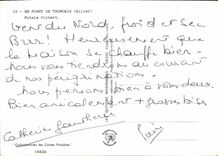 02 - EN FORET DE TRONCAIS (Allier)
Futaie Colbert.
Vent du Nord, froid et sec
Brrr ! Heureusement que
la maison se chauffe bien -
Nous vous tiendrons au courant
de nos pérégrinations -
nous pensons bien à vous deux.
Bien amicalement + grosses bises
Catherine
"Collectionnez les Cartes Postales"